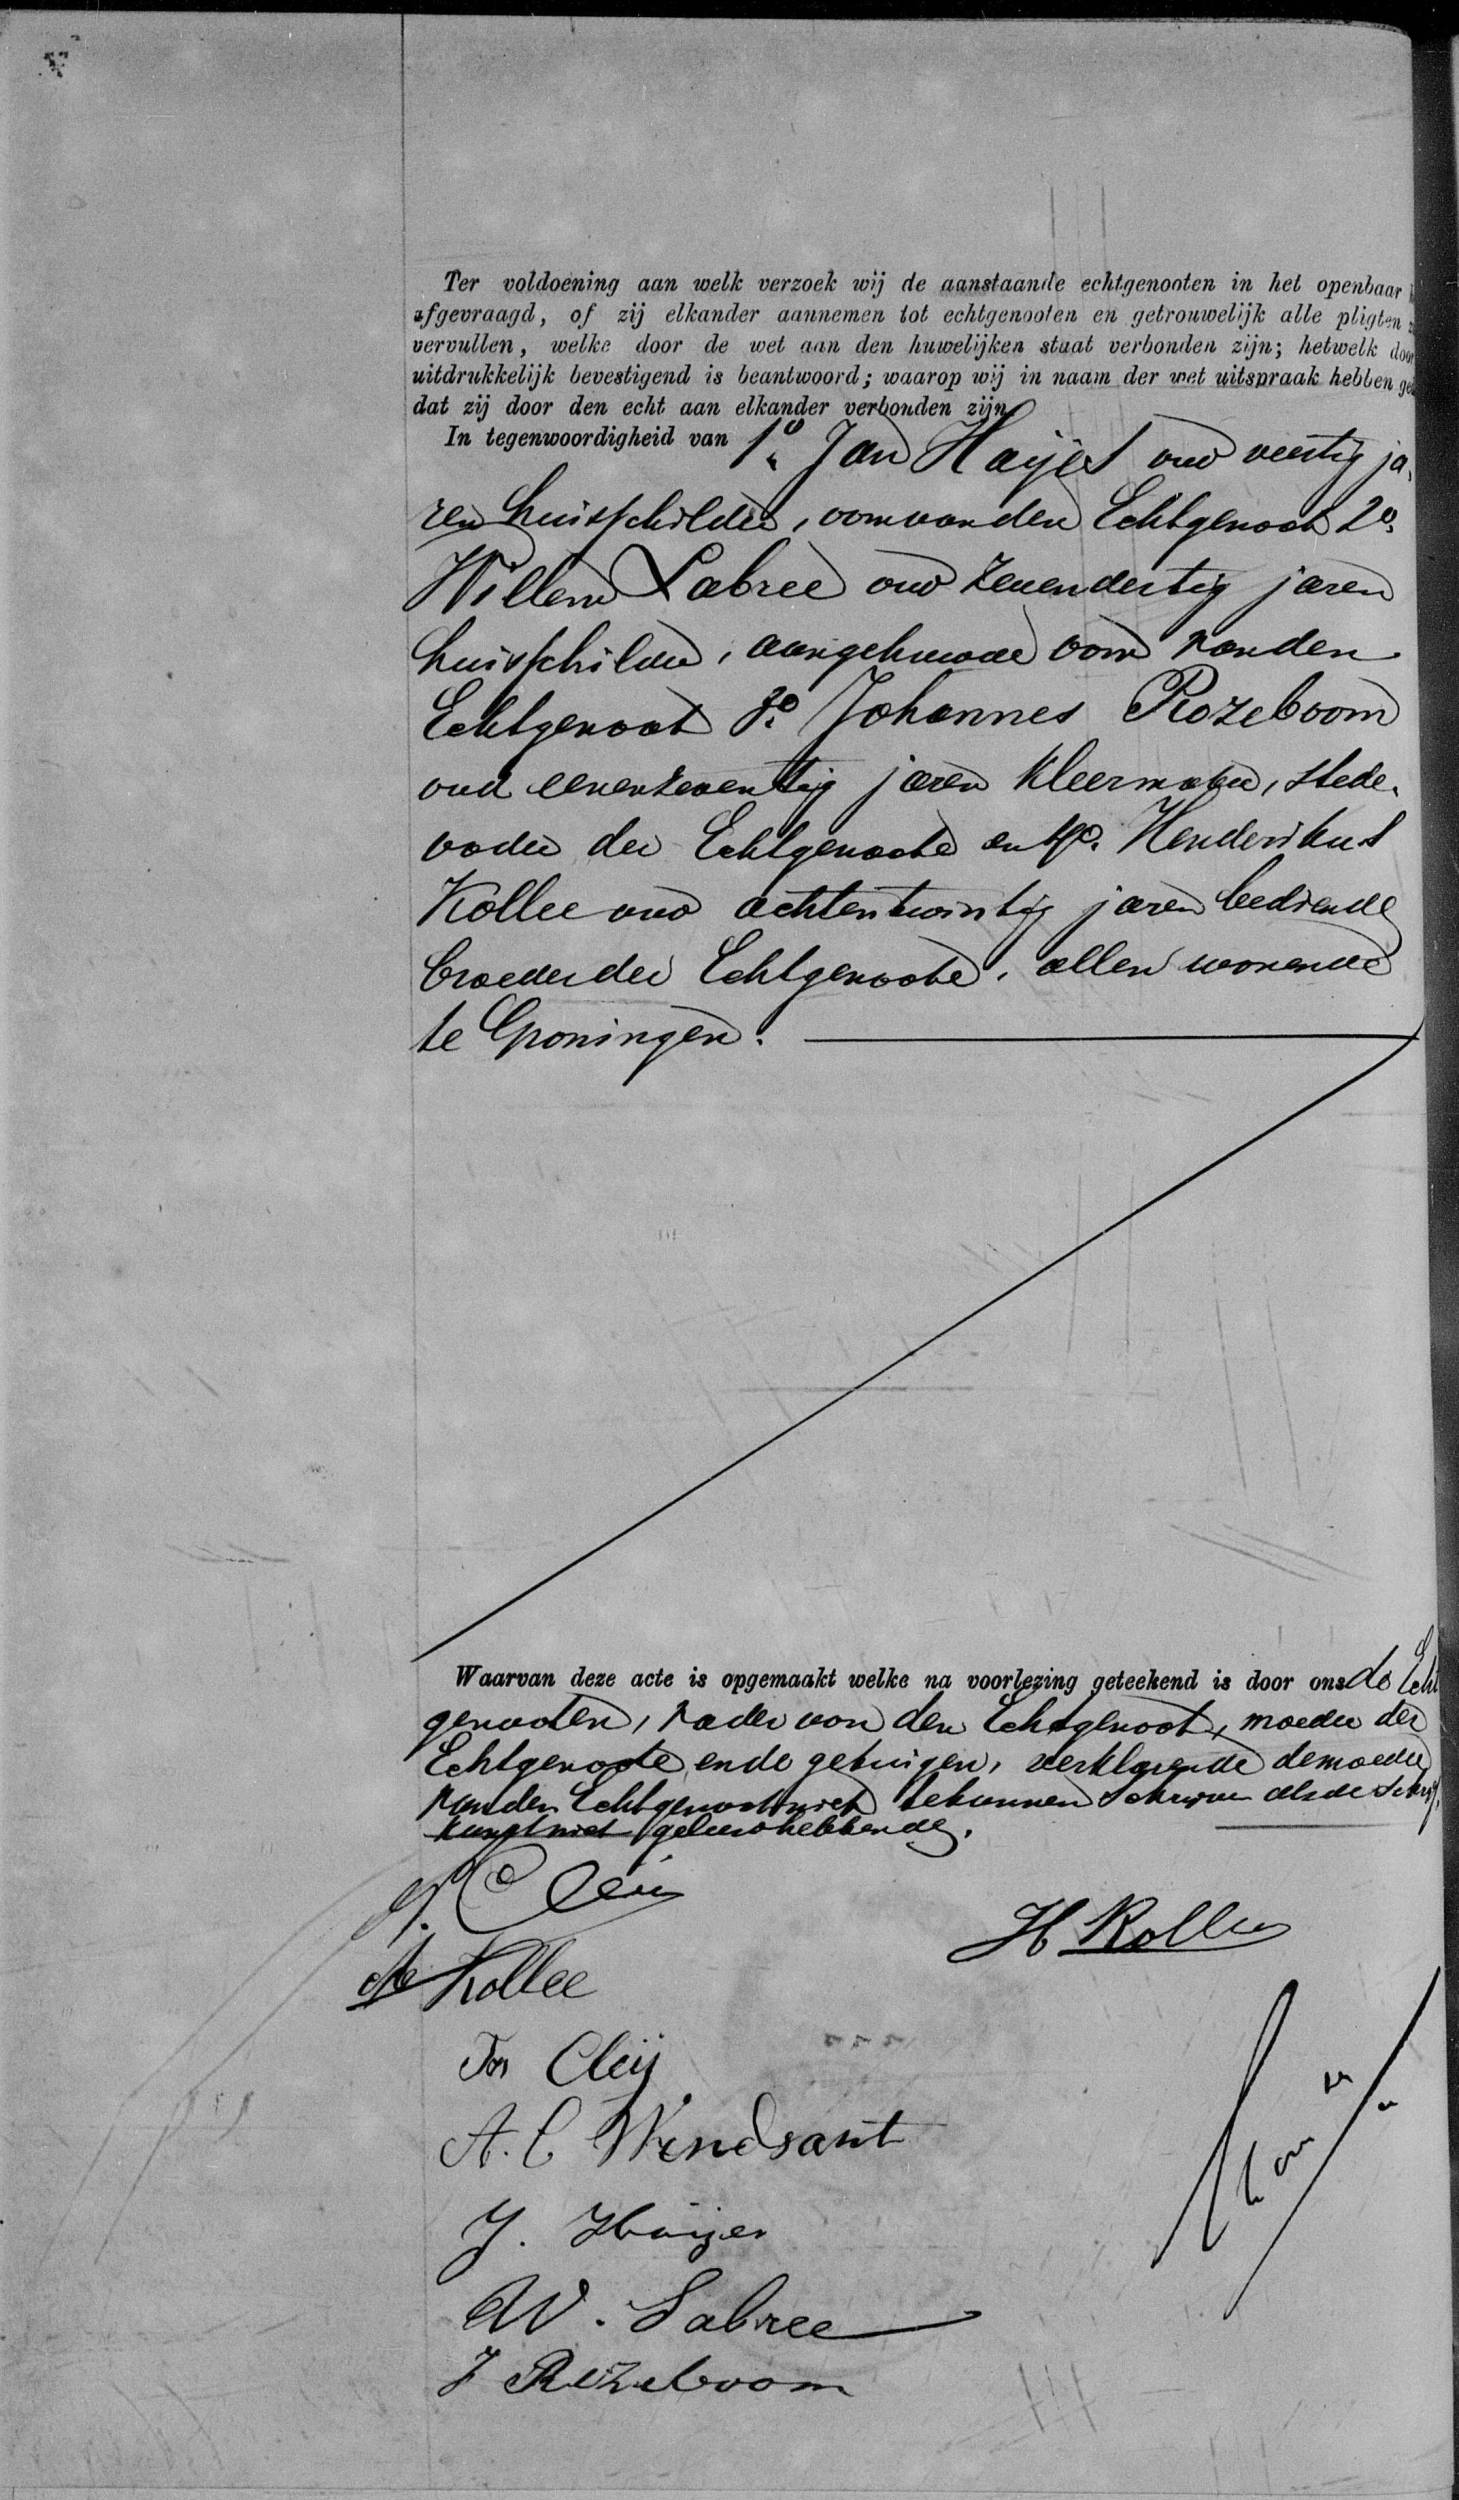 Ter voldoening aan welk verzoek wij de aanstaande echtgenooten in het openbaar
afgevraagd, of zij elkander aannemen tot echtgenooten en getrouwelijk alle pligten
vervullen, welke door de wet aan den huwelijken staat verbonden zijn; hetwelk door
uitdrukkelijk bevestigend is beantwoord; waarop wij in naam der wet uitspraak hebben
dat zij door den echt aan elkander verbonden zijn.
In tegenwoordigheid van 1o. Jan Haijes oud veertig ja,
ren huisschilder, oom van den Echtgenoot 2o.
Willem Labree oud zevendertig jaren
huisschilder, aangehuwde oom van den
Echtgenoot 3o. Johannes Rozeboom
oud eenenzeventig jaren kleermaker, stede,
vader der Echtgenoote en 4o. Henderikus
Kollee oud achtentwintig jaren bediende
broeder der Echtgenoote, allen wonende
te Groningen.
Waarvan deze acte is opgemaakt welke na voorlezing geteekend is door ons de Echt
genooten, vader van den Echtgenoot, moeder der
Echtgenoote en de getuigen, verklarende de moeder
van den Echtgenoot niet te kunnen schrijven als de schrijf,
kunst niet geleerd hebbende.
Cleij
H Kollee
Kollee
Cleij
A. C Windsant
J. Haijes
W. Labree
J Rozeboom